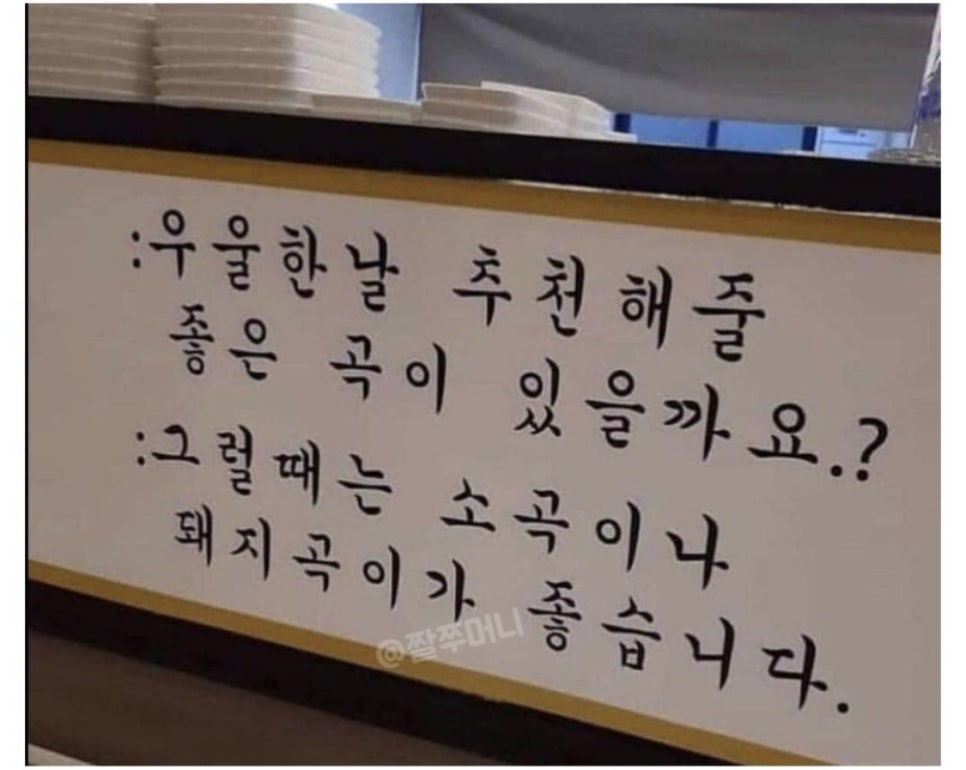 :우울한날 추천해줄
좋은 곡이 있을까요.?
:그럴때는 소곡이나
돼지곡이가 좋습니다.
@짤쭈머니